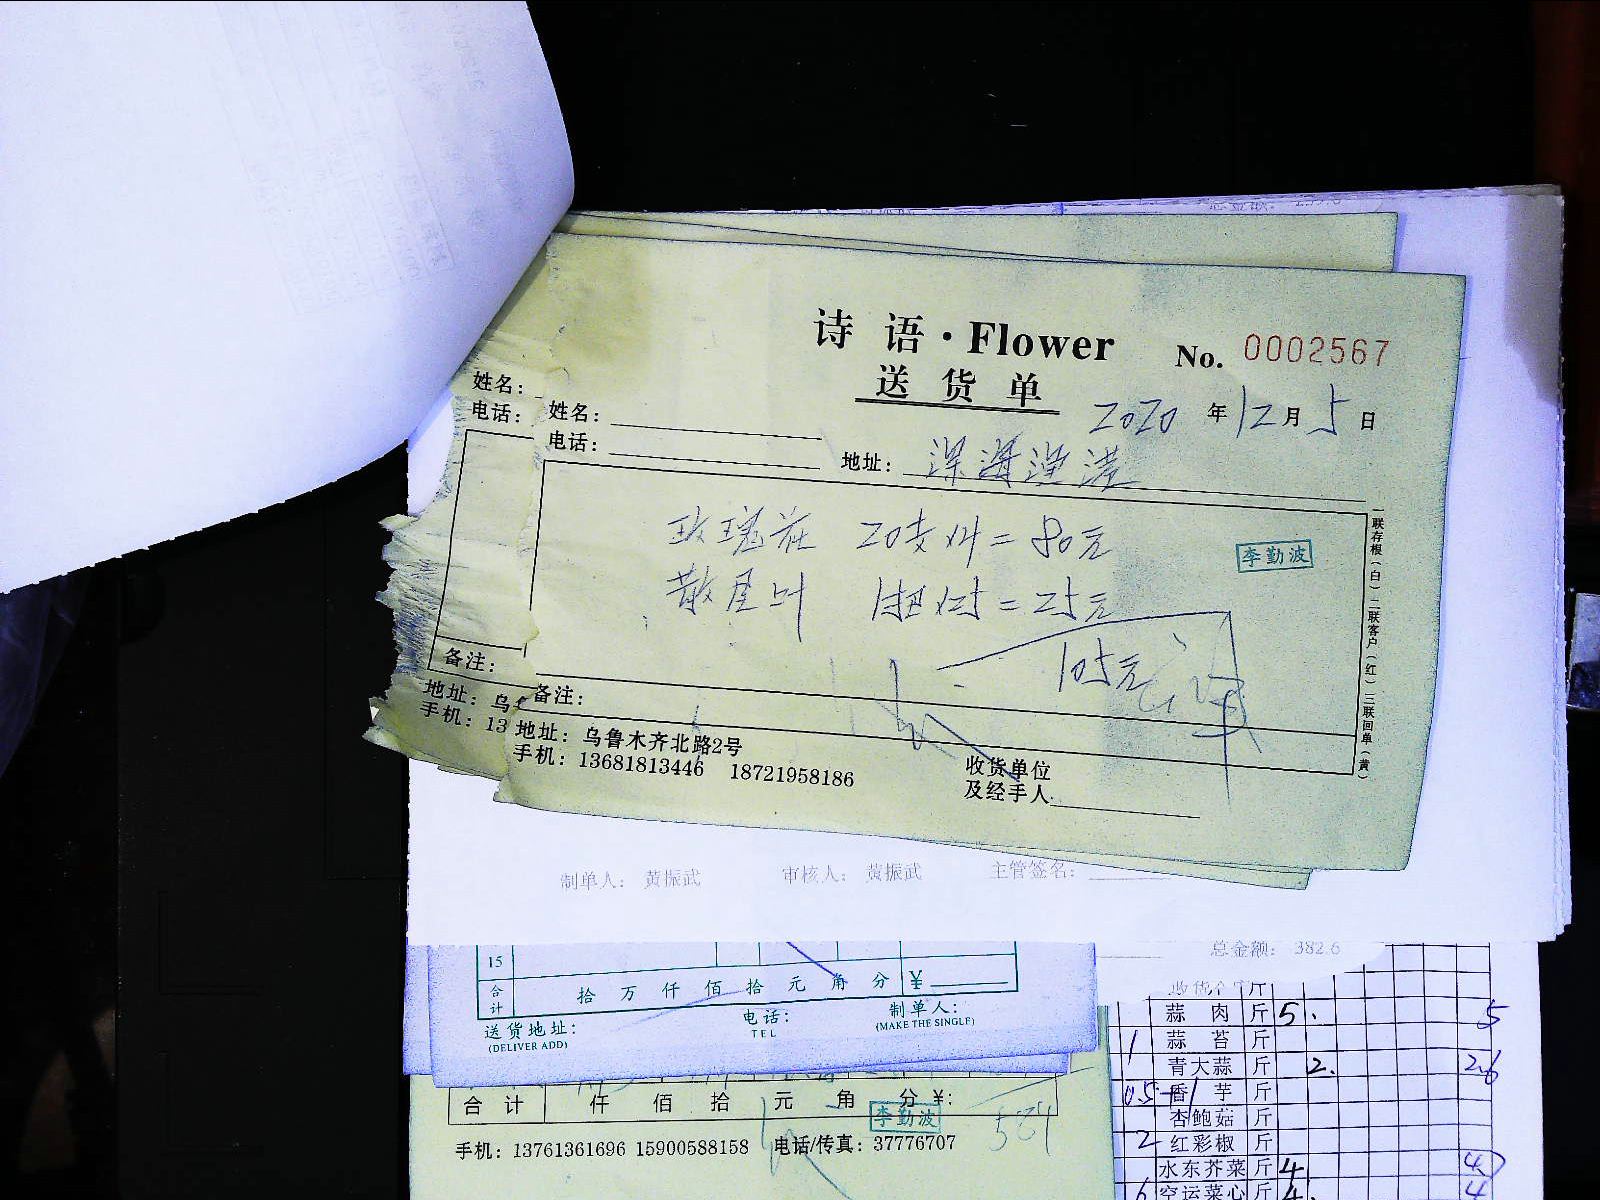 诗 语·Flower
No. 0002567
送 货 单
2020 年 12 月 5 日
姓名:
电话:
姓名:
电话:
地址:
玫瑰花 20支×4=80元
散尾叶 1扎×25=25元
李勤波
105元
一联存根(白)二联客户(红)三联回单(黄)
备注:
备注:
地址: 乌
手机: 13
地址: 乌鲁木齐北路2号
手机: 13681813446 18721958186
收货单位
及经手人
制单人: 黄振武 审核人: 黄振武 主管签名:
总金额: 382.6
15
合计 拾 万 仟 佰 拾 元 角 分 ¥
送货地址:
(DELIVER ADD)
电话:
TEL
制单人:
(MAKE THE SINGLE)
合 计 仟 佰 拾 元 角 分 ¥:
李勤波
手机: 13761361696 15900588158 电话/传真: 37776707
蒜 肉 斤 5. 5
1 蒜 苔 斤
青大蒜 斤 2. 2.6
0.5 香 芋 斤
杏鲍菇 斤
2 红彩椒 斤
水东芥菜 斤 4 4
6 空运菜心 斤 4. 4